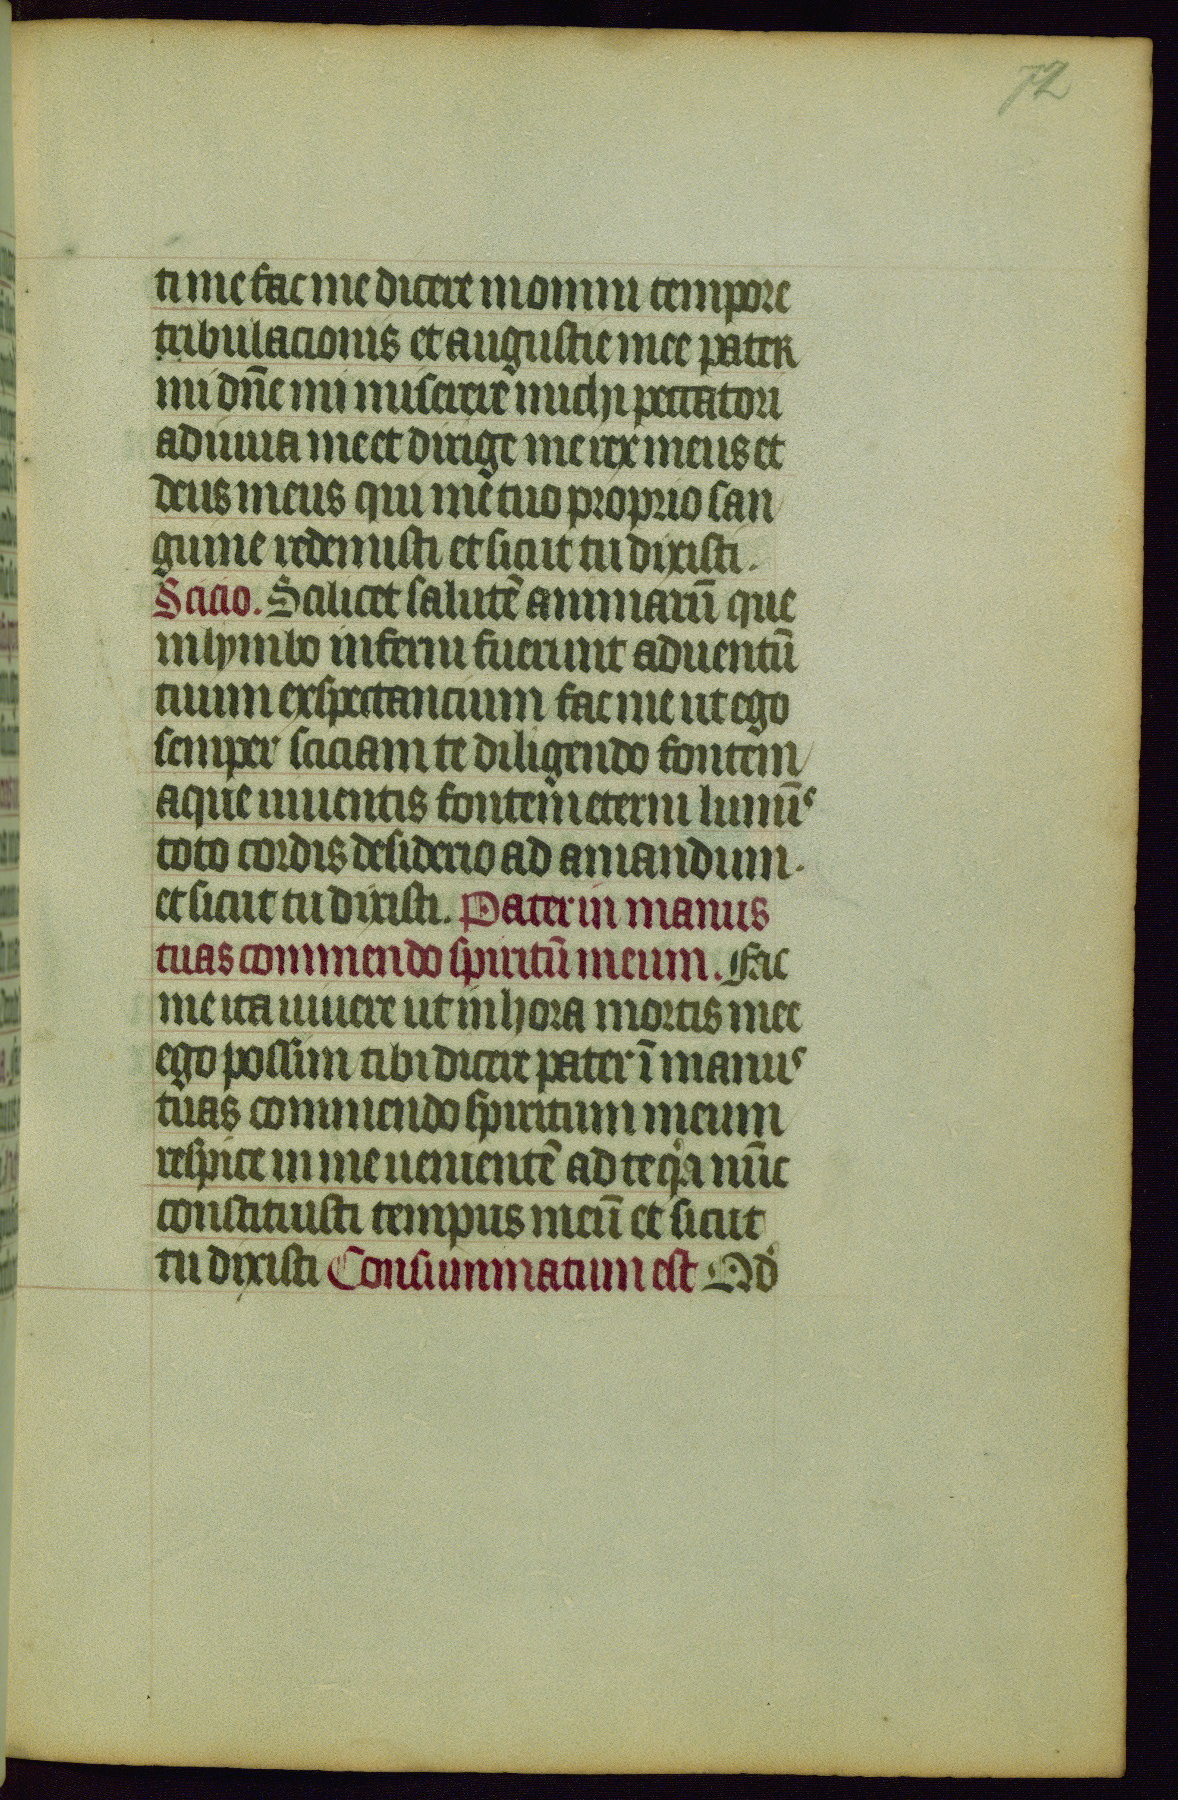 72
ti me fac me dicere in omni tempore
tribulacionis et augustie mee pater
mi dn̄e mi miserere michi peccatori
adiuua me et dirige me rex meus et
deus meus qui me tuo proprio san
guine redemisti et sicut tu dixisti.
Scicio. Scilicet salutē animarū que
in lymbo inferni fuerunt aduentū
tuum exspectancium fac me ut ego
semper sciciam te diligendo fontem
aque uiuentis fontem eterni lumīs
toto cordis desiderio ad amandum.
et sicut tu dixisti. Pater in manus
tuas commendo spiritū meum. Fac
me ita uiuere ut in hora mortis mee
ego possim tibi dicere pater ī manus
tuas commendo spiritum meum
respice in me uenientē ad te qͥa nūc
constituisti tempus meū et sicut
tu dixisti Consummatum est Ad